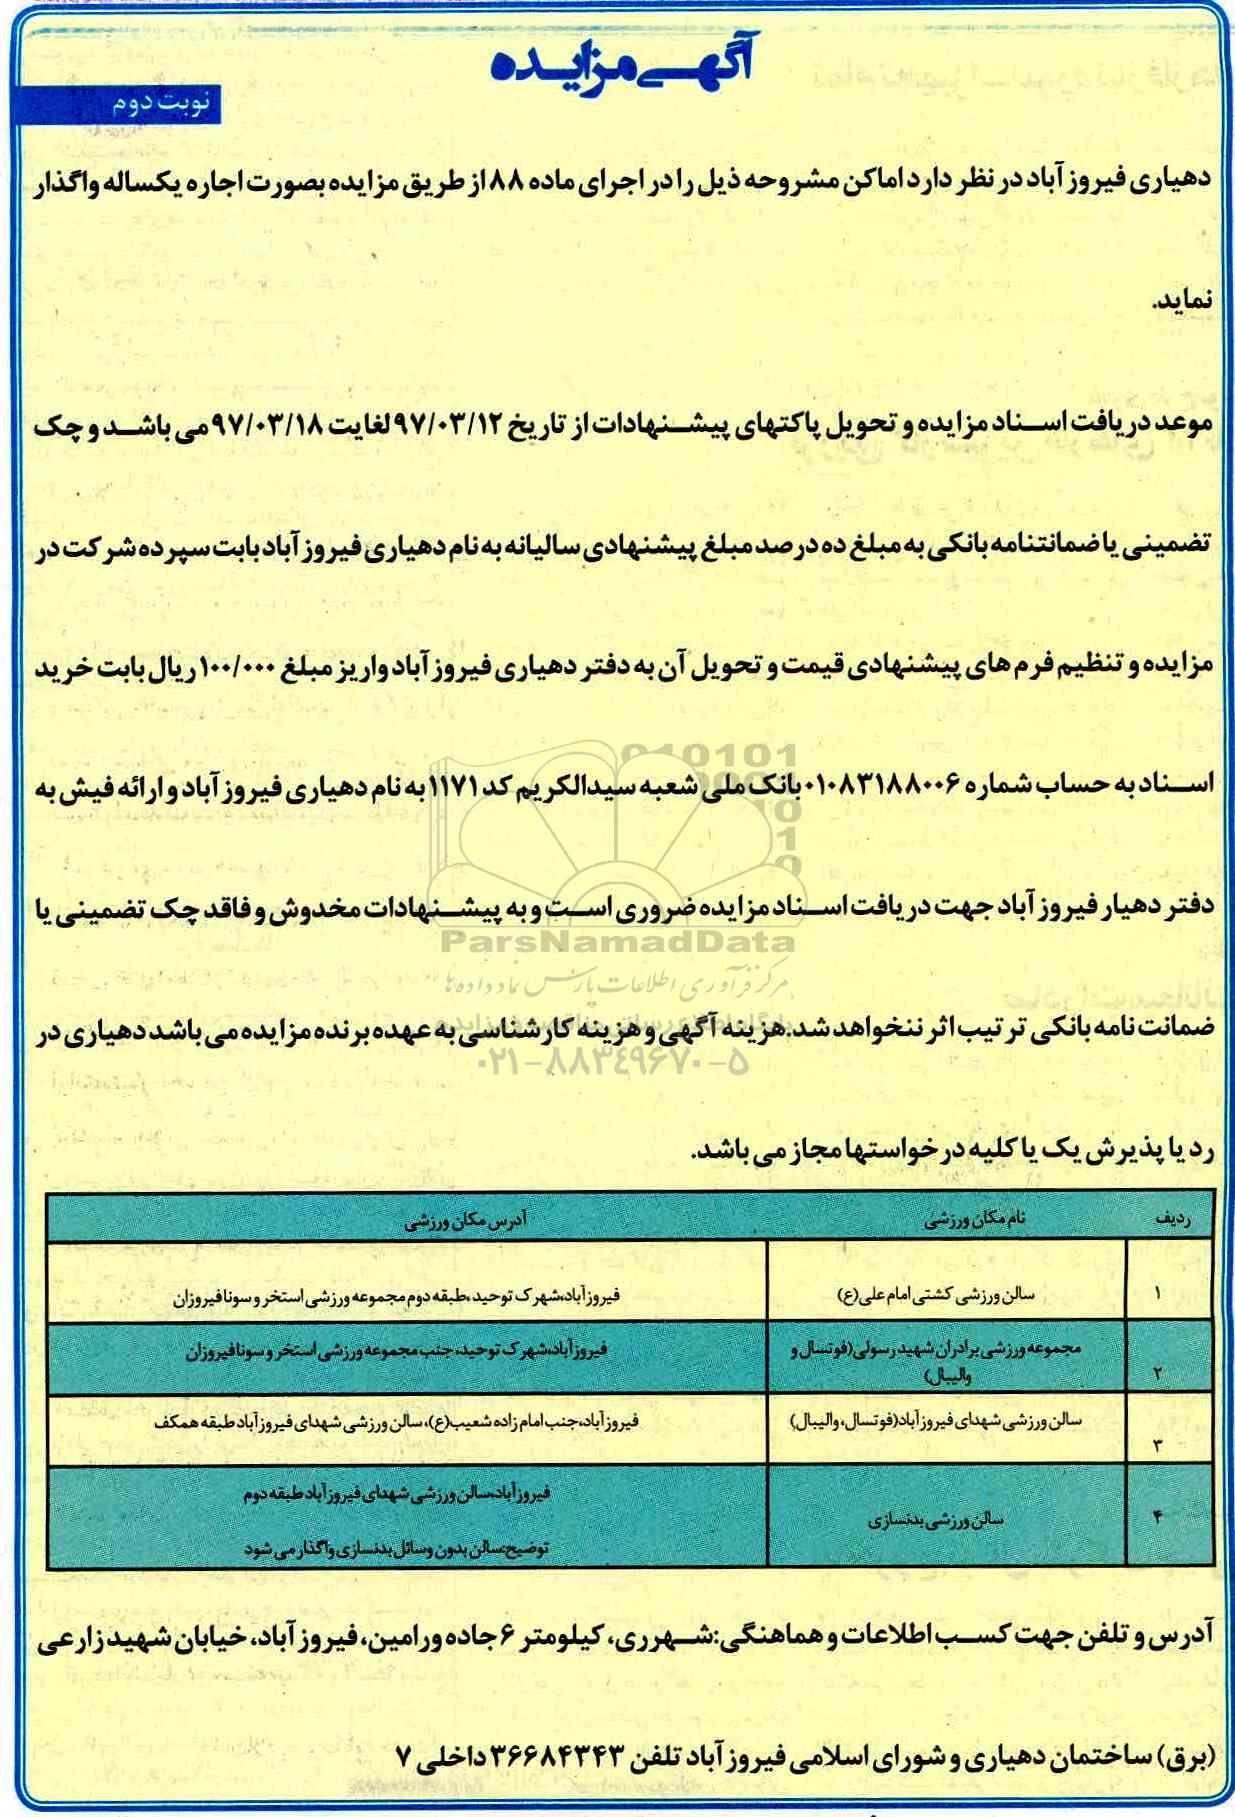 آگهی مزایده
نوبت دوم
دهیاری فیروز آباد در نظر دارد اماکن مشروحه ذیل را در اجرای ماده ۸۸ از طریق مزایده بصورت اجاره یکساله واگذار
نماید.
موعد دریافت اسناد مزایده و تحویل پاکتهای پیشنهادات از تاریخ ۹۷/۰۳/۱۲ لغایت ۹۷/۰۳/۱۸ می باشد و چک
تضمینی یا ضمانتنامه بانکی به مبلغ ده درصد مبلغ پیشنهادی سالیانه به نام دهیاری فیروز آباد بابت سپرده شرکت در
مزایده و تنظیم فرم های پیشنهادی قیمت و تحویل آن به دفتر دهیاری فیروز آباد واریز مبلغ ۱۰۰/۰۰۰ ریال بابت خرید
اسناد به حساب شماره ۰۱۰۸۳۱۸۸۰۰۶ بانک ملی شعبه سیدالکریم کد ۱۱۷۱ به نام دهیاری فیروز آباد و ارائه فیش به
دفتر دهیار فیروز آباد جهت دریافت اسناد مزایده ضروری است و به پیشنهادات مخدوش و فاقد چک تضمینی یا
ParsNamadData
مرکز فرآوری اطلاعات پارس نماد داده ها
ضمانت نامه بانکی ترتیب اثر ننخواهد شد.هزینه آگهی و هزینه کارشناسی به عهده برنده مزایده می باشد دهیاری در
۰۲۱-۸۸۳۴۹۶۷۰-۵
رد یا پذیرش یک یا کلیه درخواستها مجاز می باشد.
ردیف نام مکان ورزشی آدرس مکان ورزشی
۱ سالن ورزشی کشتی امام علی(ع) فیروزآباد،شهرک توحید ،طبقه دوم مجموعه ورزشی استخر و سونا فیروزان
۲ مجموعه ورزشی برادران شهید رسولی(فوتسال و فیروزآباد،شهرک توحید، جنب مجموعه ورزشی استخر و سونا فیروزان
والیبال)
۳ سالن ورزشی شهدای فیروز آباد(فوتسال، والیبال) فیروز آباد،جنب امام زاده شعیب(ع)، سالن ورزشی شهدای فیروزآباد طبقه همکف
۴ سالن ورزشی بدنسازی فیروزآباد،سالن ورزشی شهدای فیروزآباد طبقه دوم
توضیح:سالن بدون وسائل بدنسازی واگذار می شود
آدرس و تلفن جهت کسب اطلاعات و هماهنگی:شهرری، کیلومتر ۶ جاده ورامین، فیروز آباد، خیابان شهید زارعی
(برق) ساختمان دهیاری و شورای اسلامی فیروز آباد تلفن ۳۶۶۸۴۳۴۳ داخلی ۷